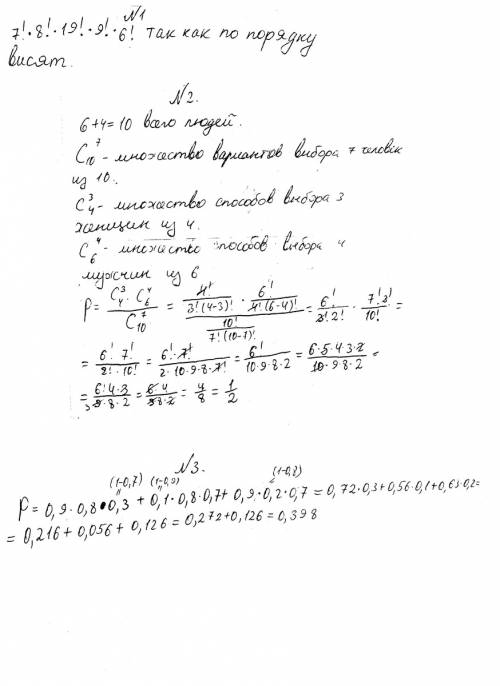 N1
7! · 8! · 19! · 9! · 6! так как по порядку
висят.
N2.
6+4=10 всего людей.
C₁₀⁷ - множество вариантов выбора 7 человек
из 10.
C₄³ - множество способов выбора 3
женщин из 4.
C₆⁴ - множество способов выбора 4
мужчин из 6
P = (C₄³ · C₆⁴)/C₁₀⁷ = (4!/(3!(4-3)!) · 6!/(4!(6-4)!))/(10!/(7!(10-7)!)) = 6!/(3!2!) · 7!3!/10! =
= 6! · 7!/(2! · 10!) = 6! · 7!/(2·10·9·8·7!) = 6!/(10·9·8·2) = 6·5·4·3·2/(10·9·8·2) =
= 6·4·3/(9·8·2) = 6·4/(3·8·2) = 4/8 = 1/2
N3.
(1-0,7) (1-0,9) (1-0,8)
P = 0,9 · 0,8 · 0,3 + 0,1 · 0,8 · 0,7 + 0,9 · 0,2 · 0,7 = 0,72 · 0,3 + 0,56 · 0,1 + 0,63 · 0,2 =
= 0,216 + 0,056 + 0,126 = 0,272 + 0,126 = 0,398